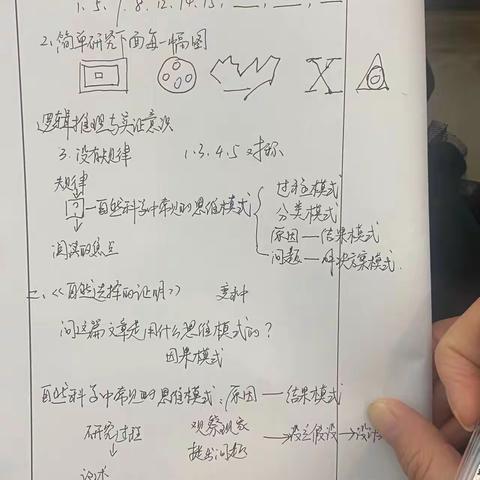 1. 5. 7. 8. 12. 14. 15. __, __, __
2. 简单研究下面每一幅图
逻辑推理与实证意识
3. 没有规律 1. 3. 4. 5 对称
失规律
? — 自然科学中常见的思维模式
过程模式
分类模式
原因 — 结果模式
问题 — 解决方案模式.
阅读的焦点
二、《自然选择的证明》 变种
问这篇文章是用什么思维模式的?
因果模式
自然科学中常见的思维模式: 原因 — 结果模式
研究过程 观察现象 → 设立假设 → 设计
提出问题
论述